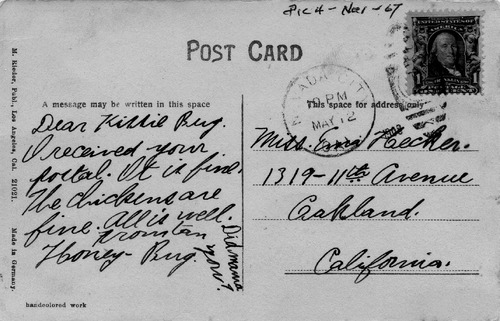 Pic 4 - Nov - 67
UNITED STATES OF AMERICA
POST CARD
NEVADA CITY
PM
MAY 12
A message may be written in this space
This space for address only
Dear Kittie Bug.
I received your
postal. It is fine.
The chickens are
fine. All is well.
from
Honey - Bug.
Did mama
Miss. Hecker.
1319-11th Avenue
Oakland.
California.
M. Rieder, Publ., Los Angeles, Cal. 21021. Made in Germany.
handcolored work